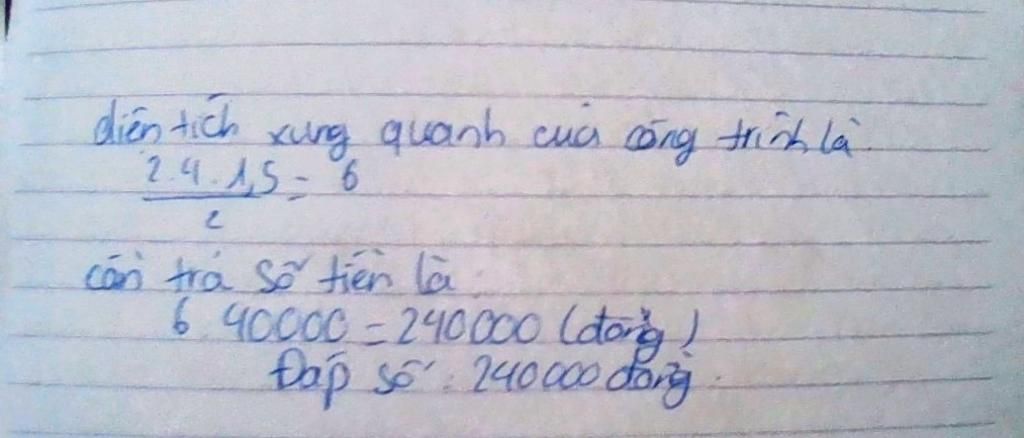 diện tích xung quanh của công trình là
2.4.1,5 = 6
2
cần trả số tiền là:
6 40000 = 240000 (đồng)
Đáp số: 240000 đồng.